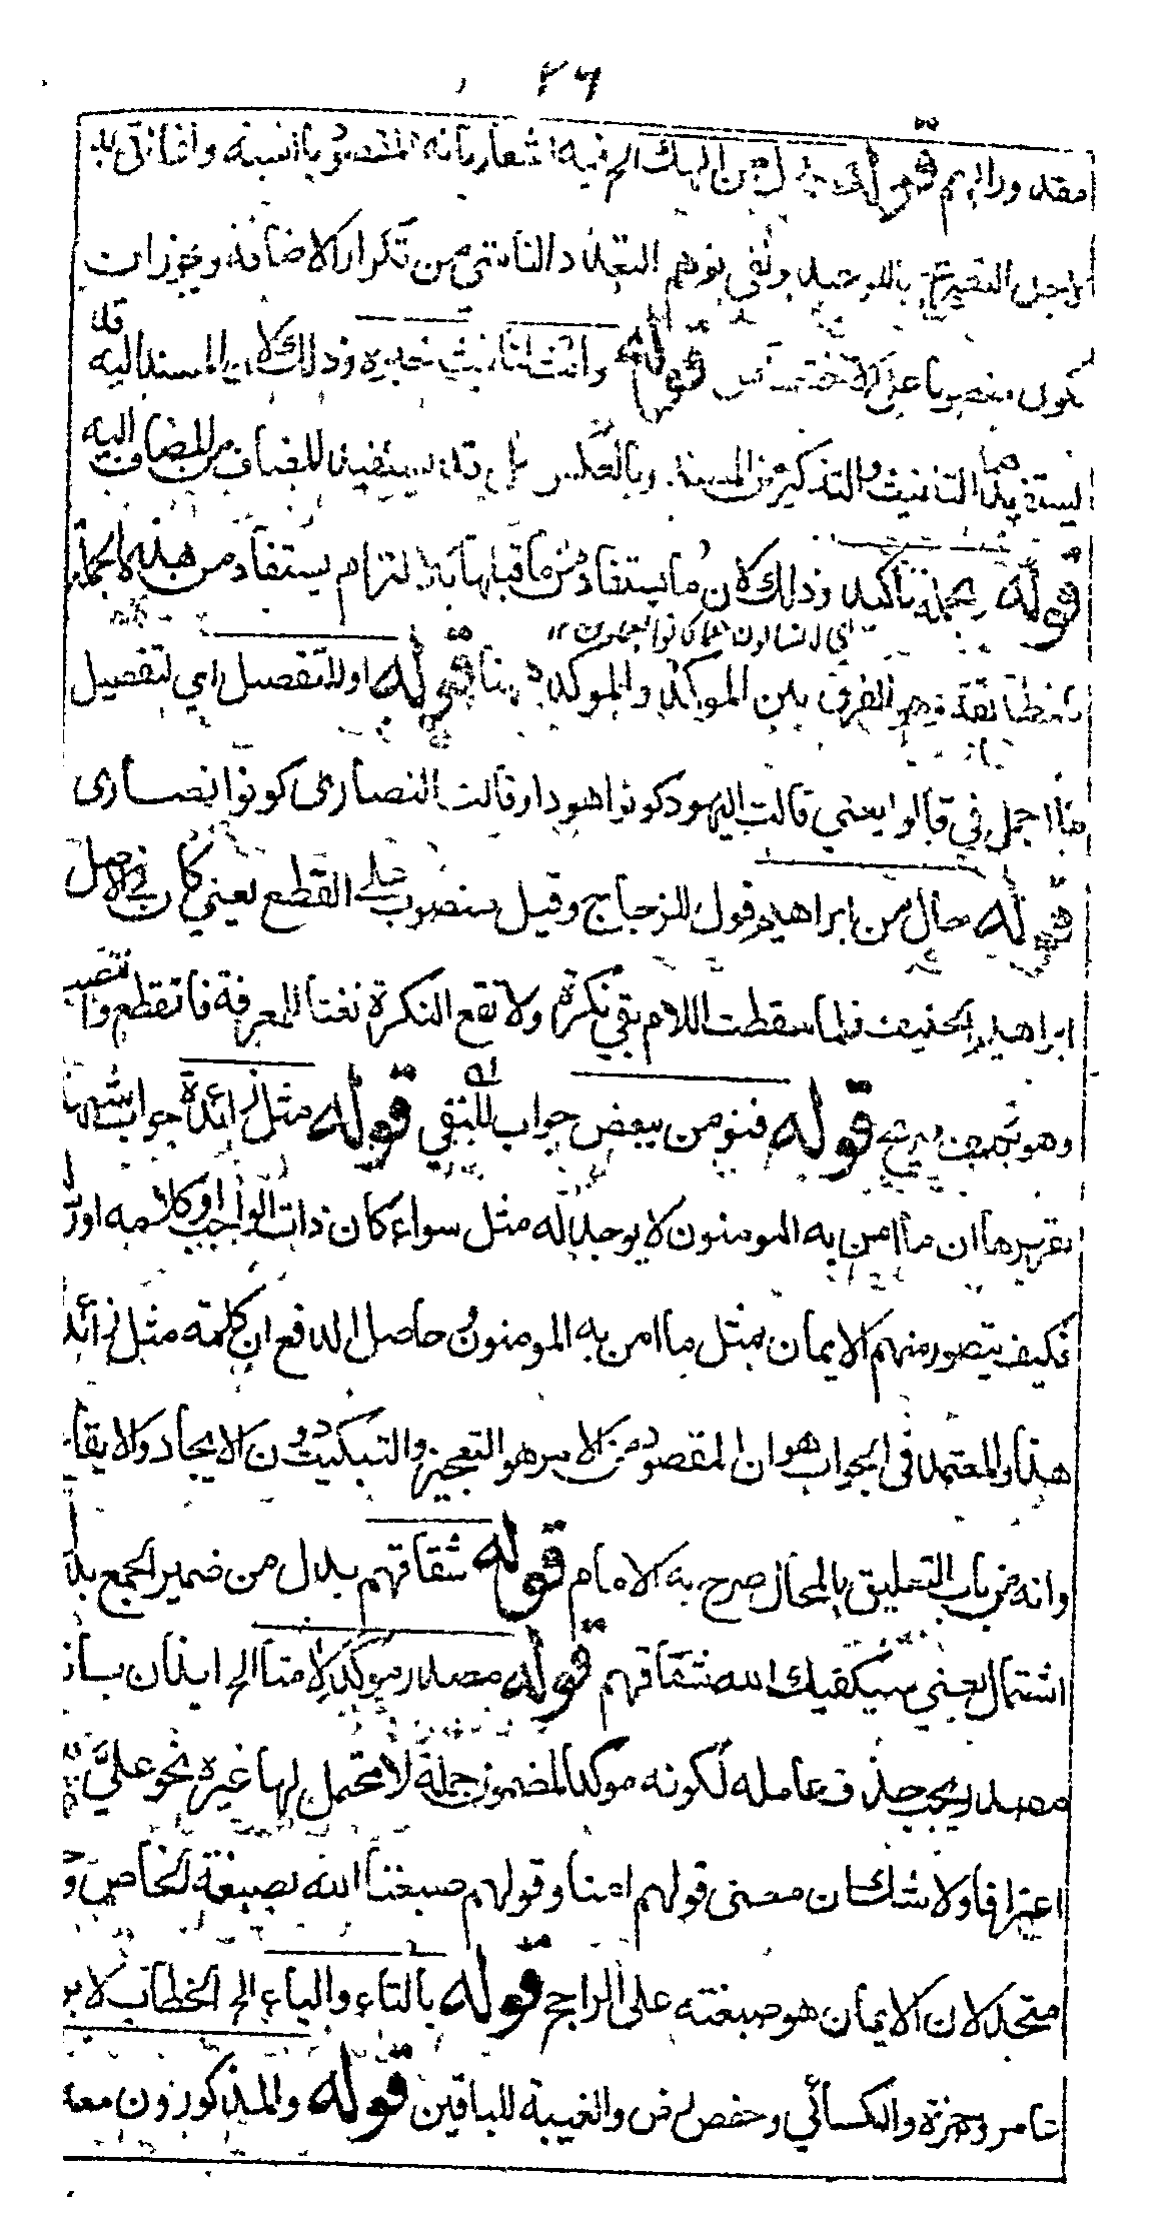 ٢٦
قوله بدل من الهك الخ فيه اشعار بانه المقصود بالنسبة وانما اتى به
لاجل التصريح بالتوحيد ونفى توهم التعدد الناشى من تكرار الاضافة ويجوز ان
يكون منصوبا على الاختصاص قوله وانث لتانيث خبره وذلك لان المسند اليه قد
يستفيد التانيث والتذكير من المسند وبالعكس بل قد يستفيد المضاف من المضاف اليه
قوله جملة تاكيد وذلك لان ما يستفاد من ما قبلها بالالتزام يستفاد من هذه الجملة
اى لا تسالون عما كانوا يعملون ١٢
الفرق بين الموكد والموكد قوله او للتفصيل اى لتفصيل
ما اجمل في قالوا يعني قالت اليهود كونوا هودا وقالت النصارى كونوا نصارى
قوله حال من ابراهيم قول للزجاج وقيل منصوب على القطع يعني كان في الاصل
ابراهيم الحنيف فلما سقطت اللام بقي نكرة ولا تقع النكرة نعتا للمعرفة فانقطع وانتصب
وهو قوله فنؤمن ببعض جواب للنفي قوله مثل زائدة جواب شبهة
تقريرها ان ما امن به المومنون لا يوجد له مثل سواء كان ذات الواجب او كلامه او
فكيف يتصور منهم الايمان بمثل ما امن به المومنون حاصل الدفع ان كلمة مثل زائد
هذا والمعتمد فى الجواب هو ان المقصود من الامر هو التعجيز والتبكيت دون الايجاد والايقاع
وانه من باب التعليق بالمحال صرح به الامام قوله شقاقهم بدل من ضمير الجمع بدل
اشتمال يعني سيكفيك الله شقاقهم قوله مصدر موكد لامنا الخ ايذان بانه
مصدر يجب حذف عامله لكونه موكدا لمضمون جملة لا محتمل لها غيره نحو علي
اعترافا ولا شك ان معنى قولهم امنا وقولهم صبغنا الله بصبغة الخاص
متحد لان الايمان هو صبغته على الراجح قوله بالتاء والياء الخ الخطاب لابن
عامر وحمزة والكسائي وحفص والغيبة للباقين قوله والمذكورون معه